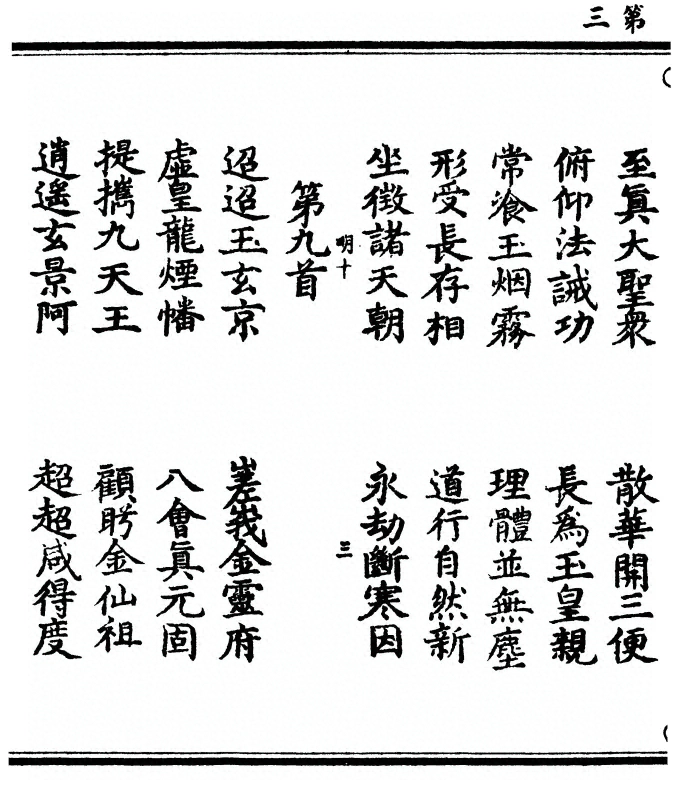 第三
至眞大聖衆 散華開三便
俯仰法誡功 長爲玉皇親
常飡玉烟霧 理體並無塵
形受長存相 道行自然新
坐徵諸天朝 永劫斷寒因
明十 三
第九首
迢迢玉玄京 嵳峩金靈府
虛皇龍煙幡 八會眞元固
提攜九天王 顧盻金仙祖
逍遙玄景阿 超超咸得度